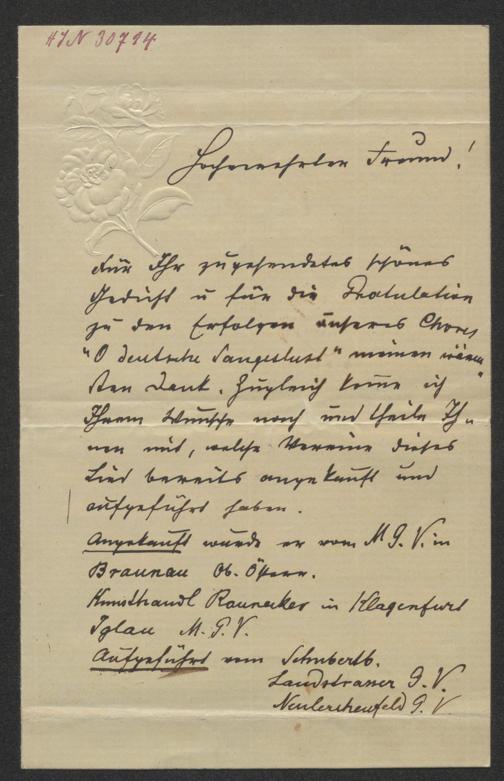 HIN 30794
Hochverehrter Freund!
Für Ihr zugesendetes schönes
Gedicht u für die Gratulation
zu den Erfolgen unseres Chores
"O deutsche Sangeslust" meinen wärm"
sten Dank. Zugleich komme ich
Ihrem Wunsche nach und theile Ih"
nen mit, welche Vereine dieses
Lied bereits angekauft und
aufgeführt haben.
Angekauft wurde er vom M. G. V. in
Braunau Ob. Österr.
Kunsthandl Raunecker in Klagenfurt
Iglau M. G. V.
Aufgeführt vom Schubertb.
Landstrasser G. V.
Neulerchenfeld G. V